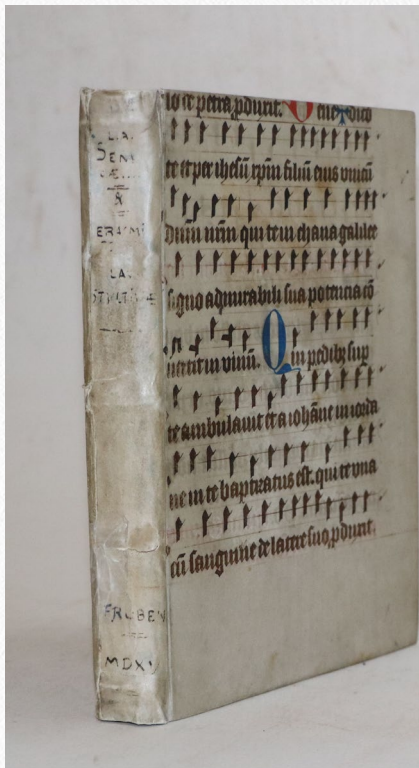 L.A.
SEN
Æ...
&
ERASMI
LA.
STVLTITIÆ
FROBEN
MDXV
lo et petra, pduxit. Benedico
te et per ihesū xp̄m filiū eius unicū
dnūm nrm qui te in chana galilee
signo admirabili sua potencia cō
uertit in vinū. Qui pedibȝ sup
te ambulauit et a iohāne in iorda
ne in te baptizatus est. qui te vna
cū sanguine de latere suo, pduxit.